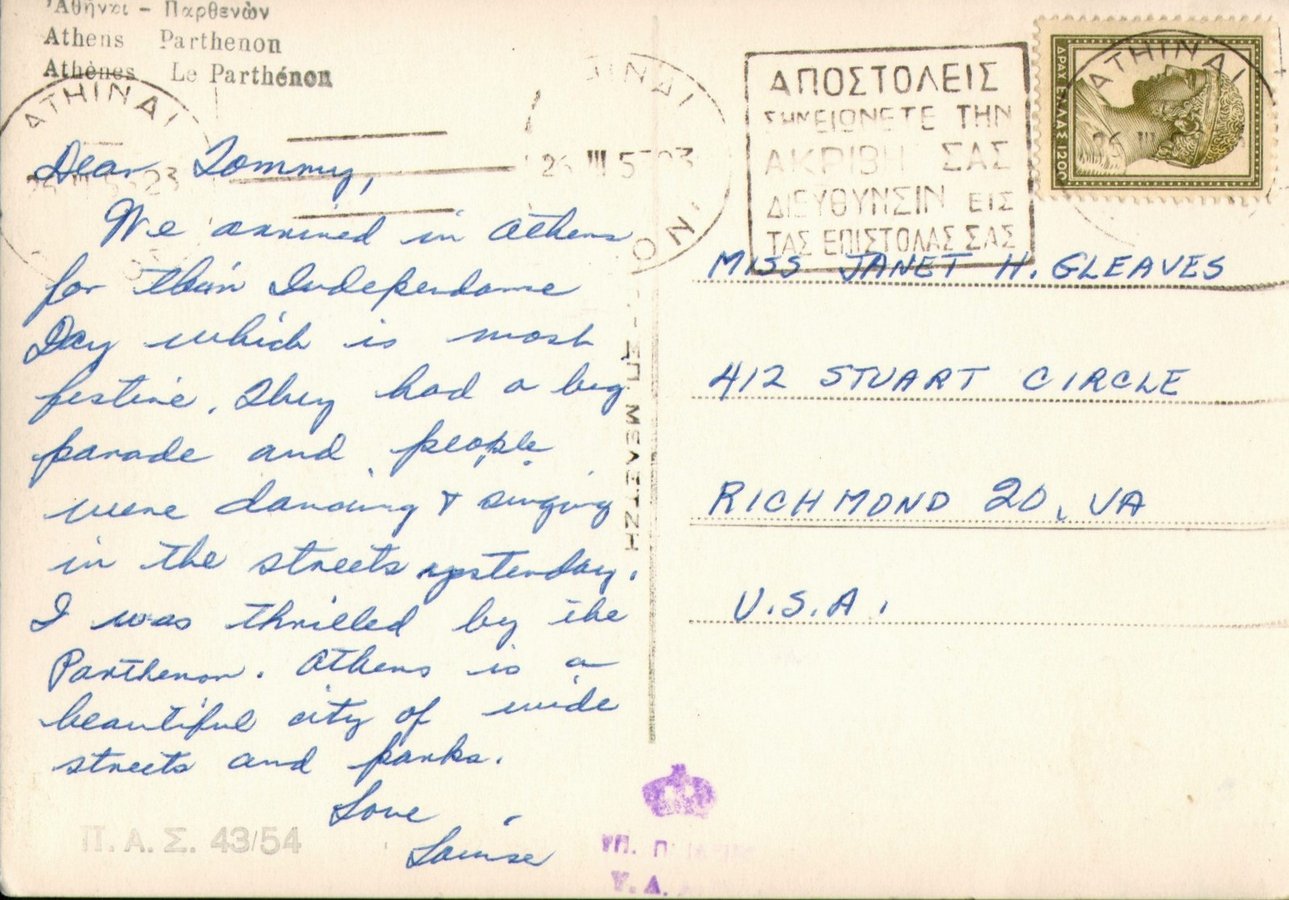 Ἀθῆναι - Παρθενὼν
Athens Parthenon
Athènes Le Parthénon
ATHINAI
Dear Tommy,
We arrived in Athens
for their Independance
Day which is most
festive. They had a big
parade and people
were dancing & singing
in the streets yesterday.
I was thrilled by the
Parthenon. Athens is a
beautiful city of wide
streets and parks.
Love
Louise
Π. Α. Σ. 43/54
26 III 5 23
ΣΠ. ΜΕΛΕΤΖΗ
ΑΠΟΣΤΟΛΕΙΣ
ΣΗΜΕΙΩΝΕΤΕ ΤΗΝ
ΑΚΡΙΒΗ ΣΑΣ
ΔΙΕΥΘΥΝΣΙΝ ΕΙΣ
ΤΑΣ ΕΠΙΣΤΟΛΑΣ ΣΑΣ
ΔΡΑΧ ΕΛΛΑΣ 1200
ATHINAI
MISS JANET H. GLEAVES
412 STUART CIRCLE
RICHMOND 20, VA
U.S.A.